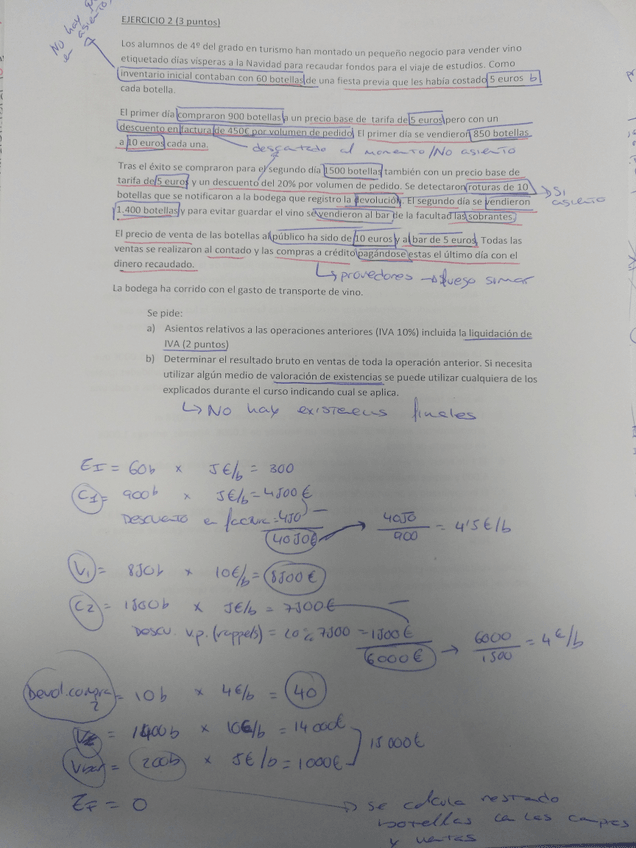 No hay
en asiento
EJERCICIO 2 (3 puntos)
Los alumnos de 4º del grado en turismo han montado un pequeño negocio para vender vino
etiquetado días vísperas a la Navidad para recaudar fondos para el viaje de estudios. Como
inventario inicial contaban con 60 botellas de una fiesta previa que les había costado 5 euros b
cada botella.
El primer día compraron 900 botellas a un precio base de tarifa de 5 euros pero con un
descuento en factura de 450€ por volumen de pedido. El primer día se vendieron 850 botellas
a 10 euros cada una.
descontado al momento/No asiento
Tras el éxito se compraron para el segundo día 1500 botellas también con un precio base de
tarifa de 5 euros y un descuento del 20% por volumen de pedido. Se detectaron roturas de 10
botellas que se notificaron a la bodega que registro la devolución. El segundo día se vendieron
1.400 botellas y para evitar guardar el vino se vendieron al bar de la facultad las sobrantes.
Si
asiento
El precio de venta de las botellas al público ha sido de 10 euros y al bar de 5 euros. Todas las
ventas se realizaron al contado y las compras a crédito pagándose estas el último día con el
dinero recaudado.
↳ provedores →
La bodega ha corrido con el gasto de transporte de vino.
Se pide:
a) Asientos relativos a las operaciones anteriores (IVA 10%) incluida la liquidación de
IVA (2 puntos)
b) Determinar el resultado bruto en ventas de toda la operación anterior. Si necesita
utilizar algún medio de valoración de existencias se puede utilizar cualquiera de los
explicados durante el curso indicando cual se aplica.
↳ No hay existencias finales
EI = 60b × 5€/b = 300
C1 = 900b × 5€/b = 4500€
Descuento en factura = 450 —
4050€ → 4050/900 = 4'5€/b
V1 = 850b × 10€/b = 8500€
C2 = 1500b × 5€/b = 7500€ —
Descu. v.p. (rappels) = 20% 7500 = 1500€
6000€ → 6000/1500 = 4€/b
Devol. compra 2 = 10b × 4€/b = 40
V2 = 1400b × 10€/b = 14000€
15000€
Vbar = 200b × 5€/b = 1000€
EF = 0
→ se calcula restando
botellas de las compras
y ventas